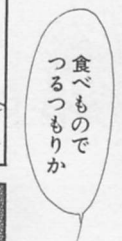 食べもので
つるつもりか